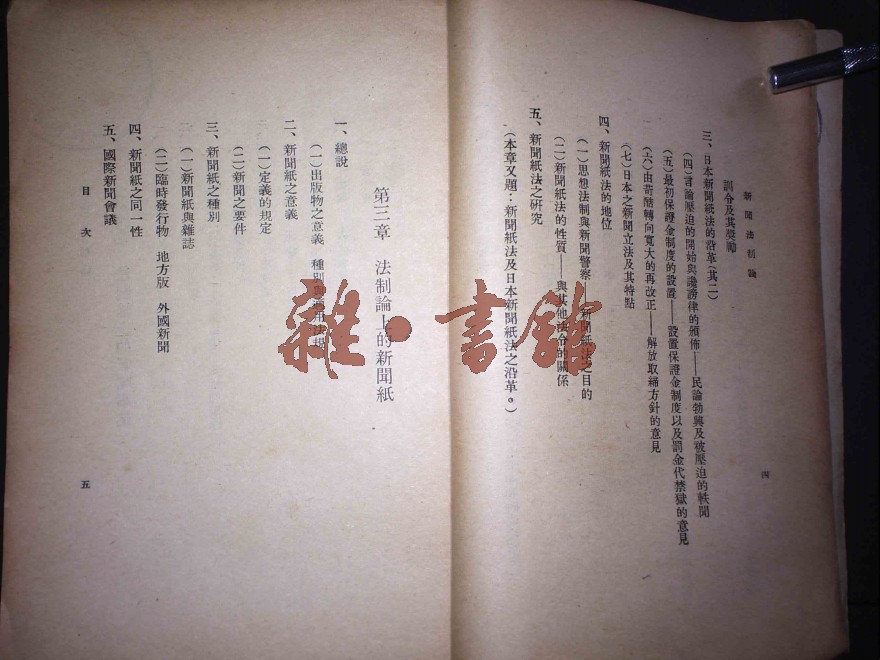 新聞法制論
四
罰令及其獎勵
三、日本新聞紙法的沿革(其二)
(四)言論壓迫的開始與讒謗律的頒佈——民論勃興及被壓迫的軼聞
(五)最初保證金制度的設置——設置保證金制度以及罰金代禁獄的意見
(六)由苛酷轉向寬大的再改正——解放取締方針的意見
(七)日本之新聞立法及其特點
四、新聞紙法的地位
(一)思想法制與新聞警察、新聞紙法之目的
(二)新聞紙法的性質——與其他法令的關係
五、新聞紙法之研究
(本章又題:新聞紙法及日本新聞紙法之沿革。)
第三章 法制論上的新聞紙
一、總說
(一)出版物之意義 種別與適用法規
二、新聞紙之意義
(一)定義的規定
(二)新聞之要件
三、新聞紙之種別
(一)新聞紙與雜誌
(二)臨時發行物 地方版 外國新聞
四、新聞紙之同一性
五、國際新聞會議
目次
五
雜·書館